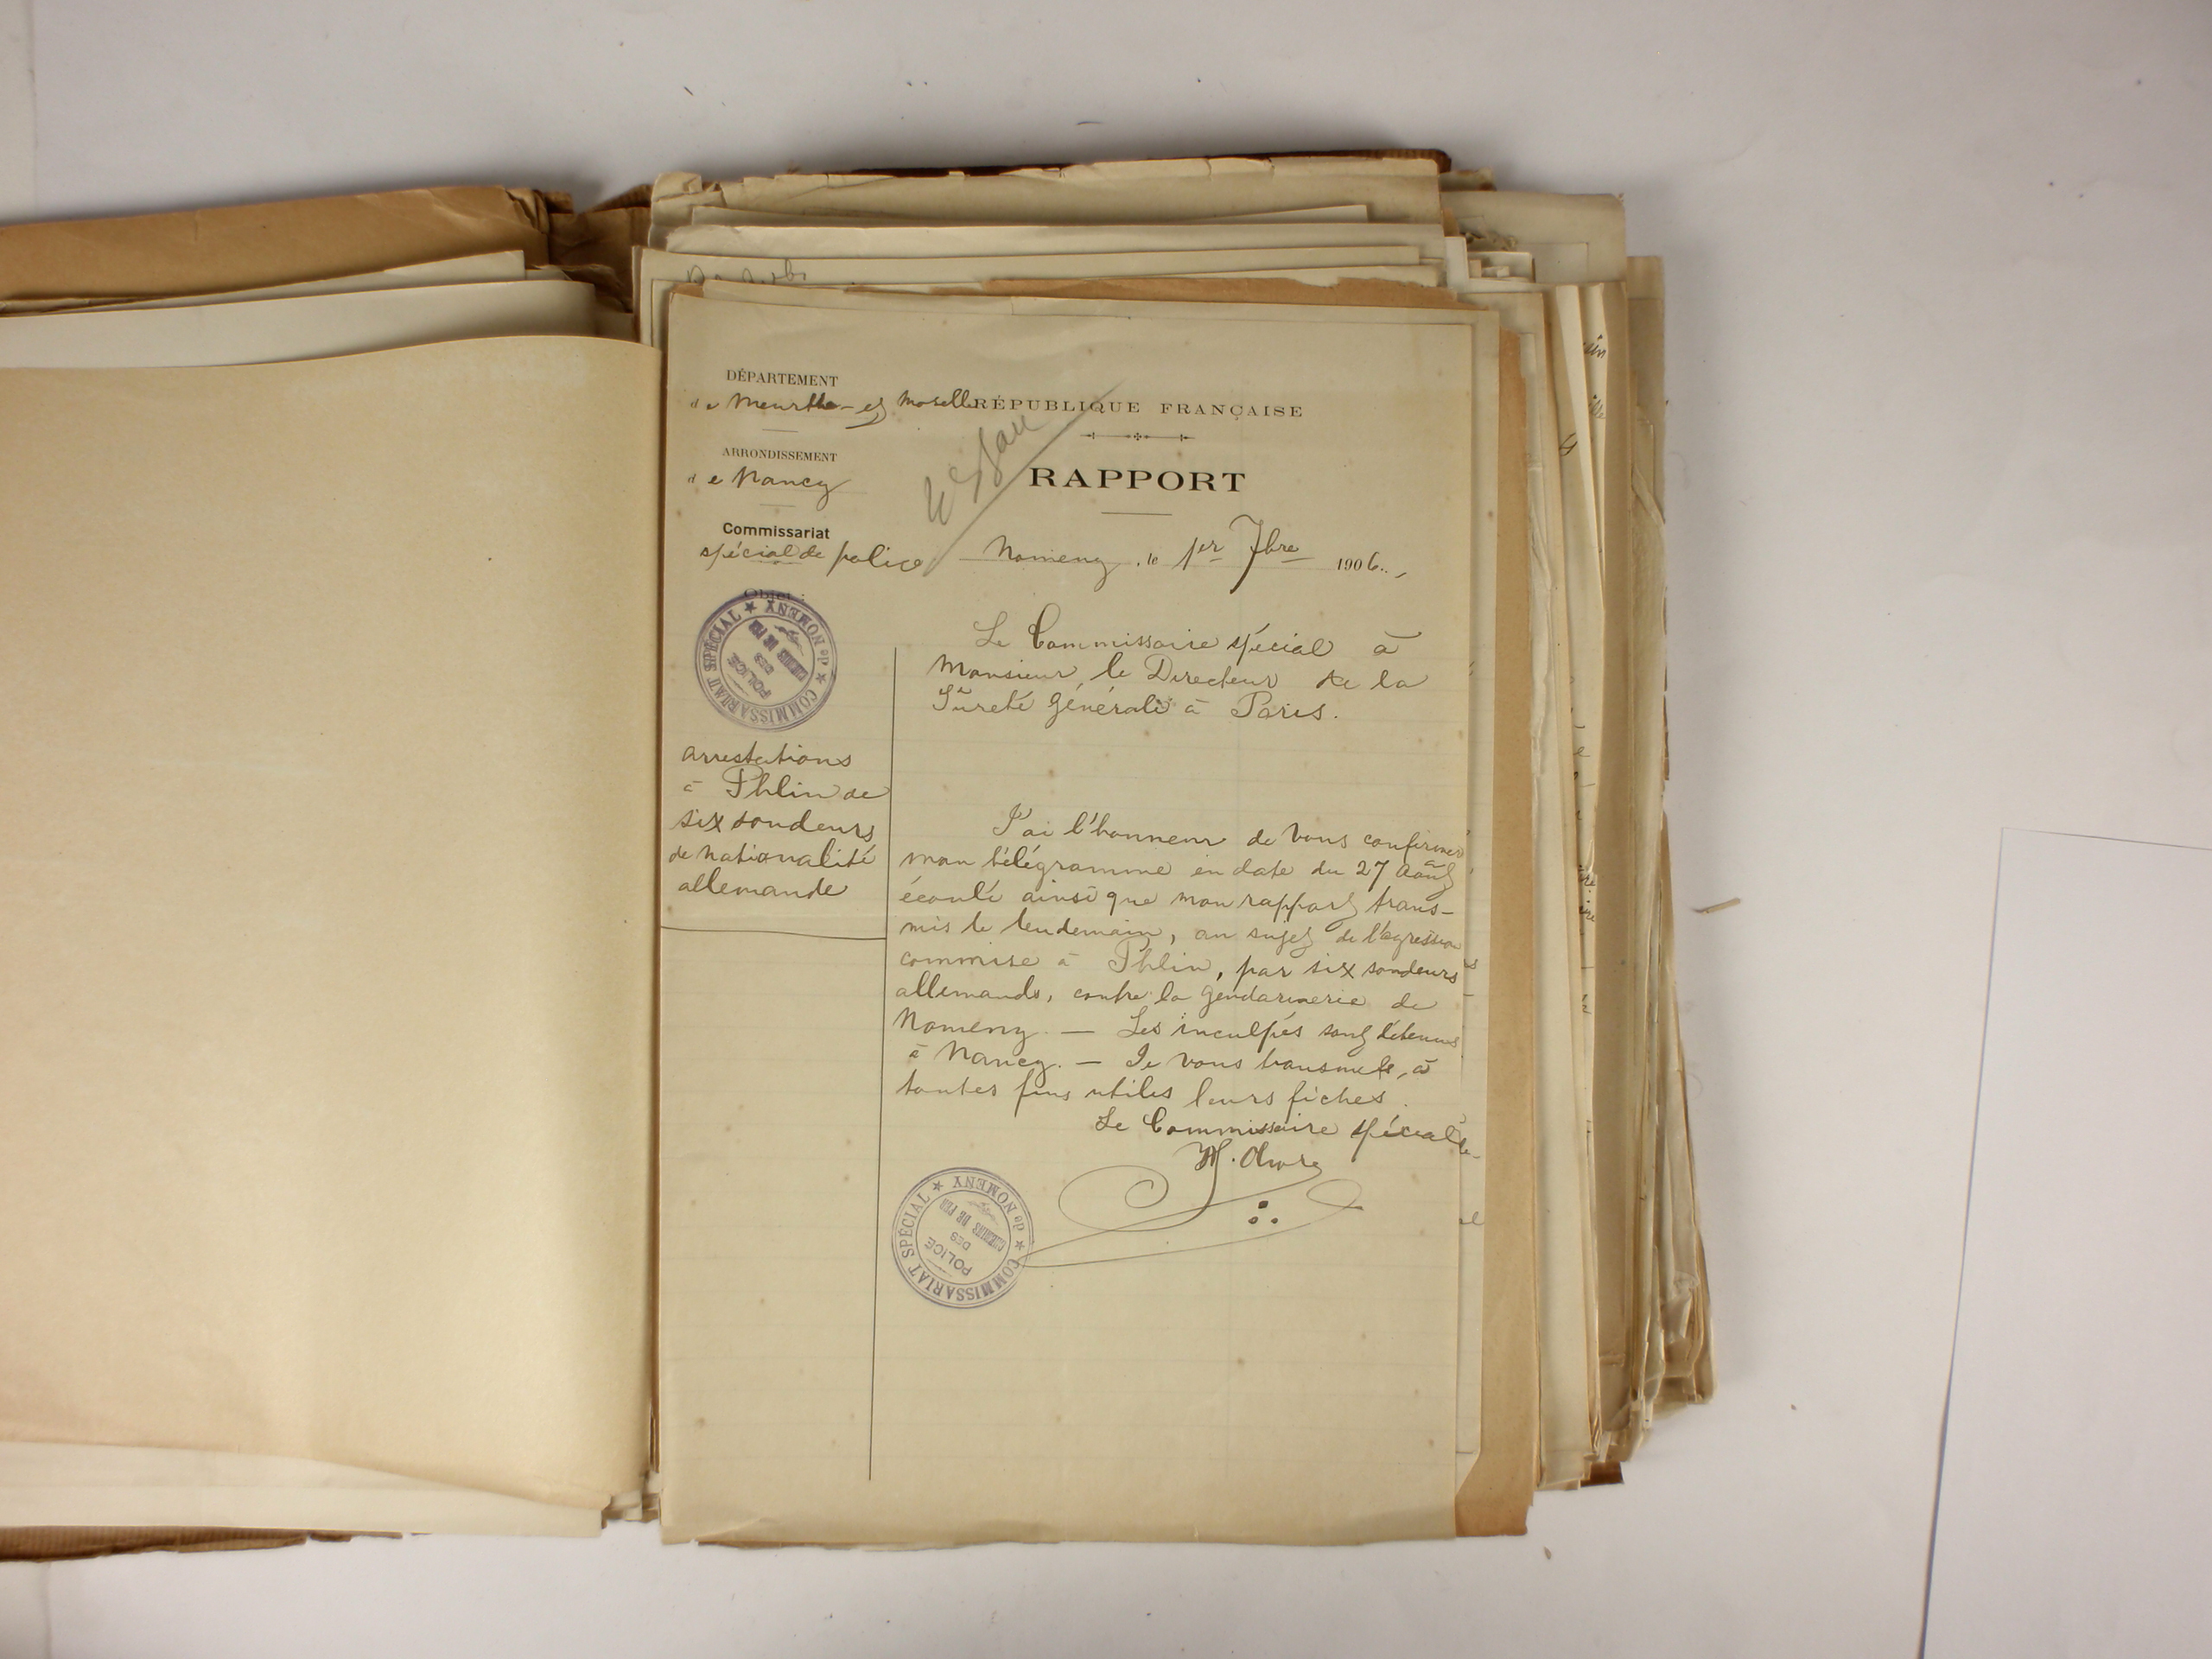 DÉPARTEMENT
de Meurthe-et Moselle
RÉPUBLIQUE FRANÇAISE
ARRONDISSEMENT
de Nancy
RAPPORT
Commissariat
spécial de police
Nomeny, le 1er 7bre 1906.
Objet :
COMMISSARIAT SPÉCIAL de NOMENY
POLICE
DES
CHEMINS DE FER
Le Commissaire spécial à
Monsieur le Directeur de la
Sûreté Générale à Paris.
arrestations
à Phlin de
six sondeurs
de nationalité
allemande
J'ai l'honneur de vous confirmer
mon télégramme en date du 27 Août
écoulé ainsi que mon rapport trans-
mis le lendemain, au sujet de l'agression
commise à Phlin, par six sondeurs
allemands, contre la gendarmerie de
Nomeny. — Les inculpés sont détenus
à Nancy. — Je vous transmets, à
toutes fins utiles leurs fiches.
Le Commissaire spécial
COMMISSARIAT SPÉCIAL de NOMENY
POLICE
DES
CHEMINS DE FER